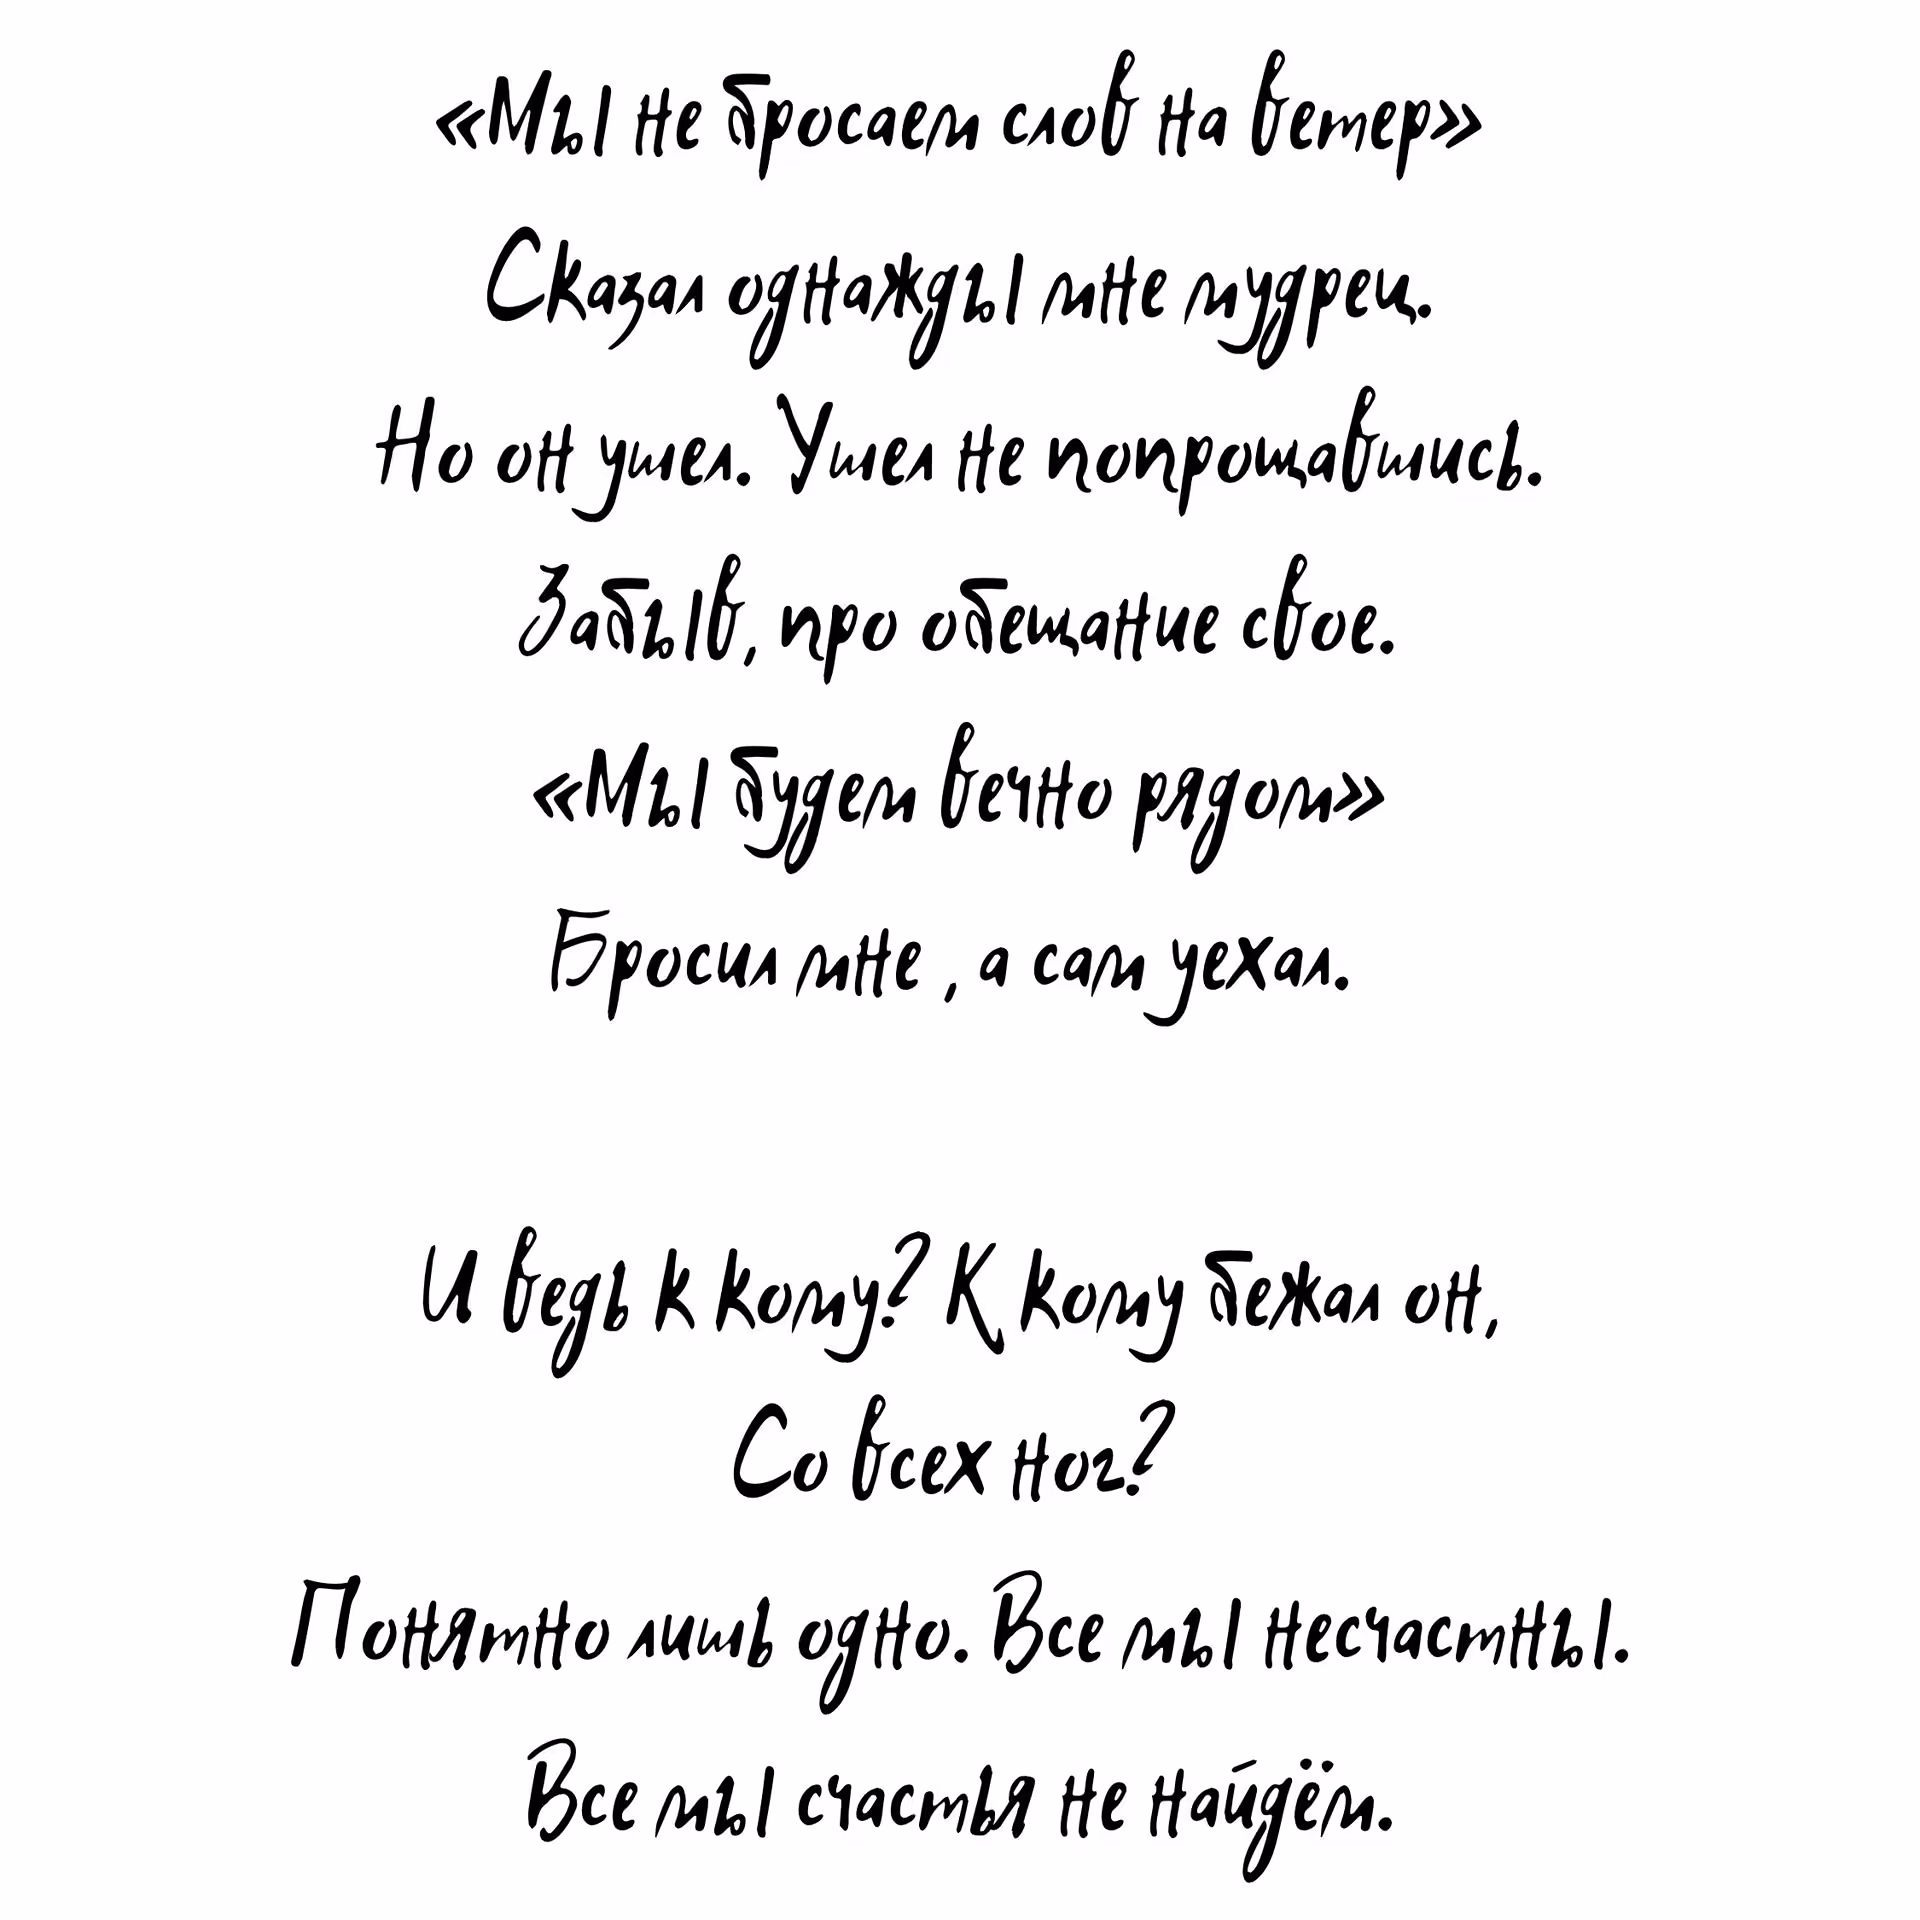 «Мы не бросаем слов на ветер»
Сказал однажды мне мудрец.
Но он ушел. Ушел не попрощавшись.
Забыв, про обещание свое.
«Мы будем вечно рядом»
Бросил мне , а сам уехал.
И ведь к кому? К кому бежал он,
Со всех ног?
Понятно лишь одно. Все мы несчастны.
Все мы счастья не найдём.